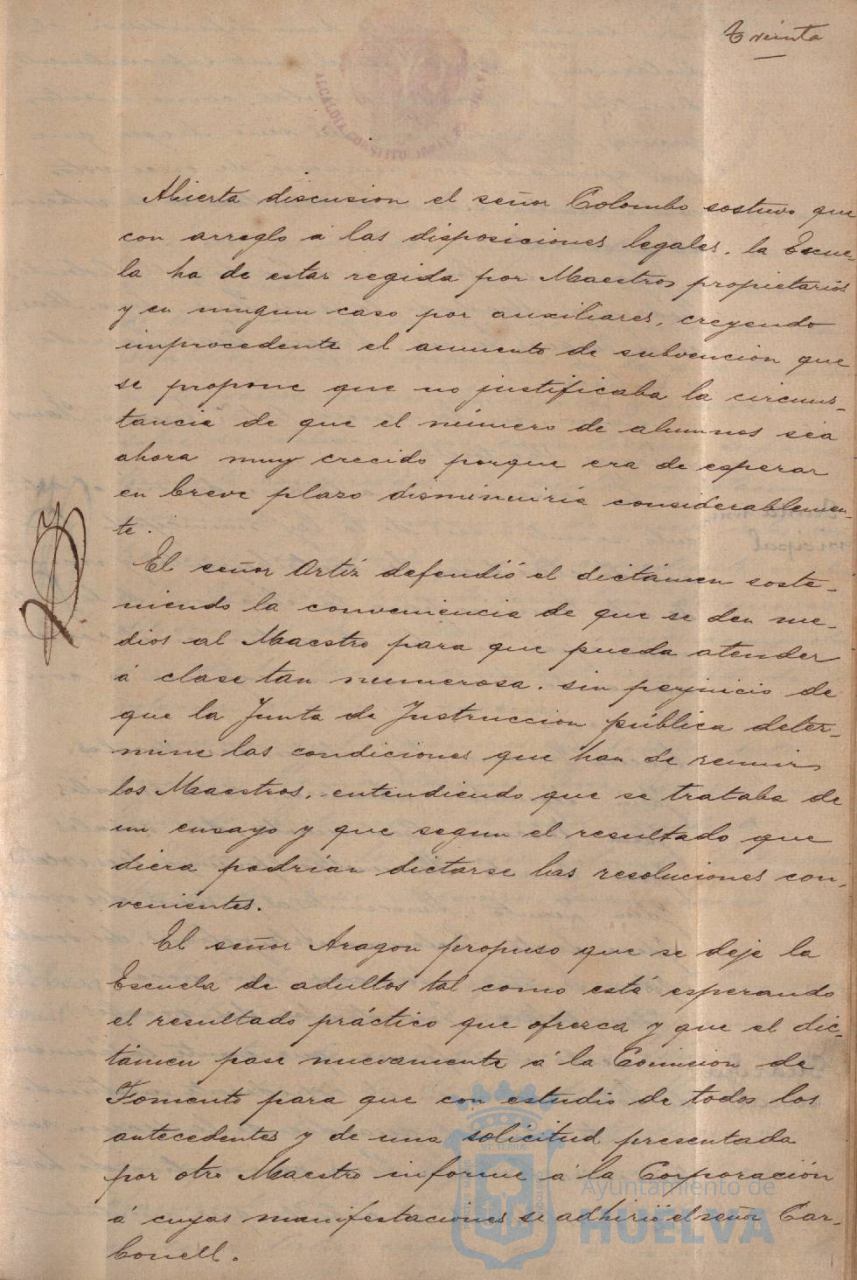 Treinta
ALCALDIA CONSTITUCIONAL
Abierta discusion el señor Colombo sostuvo que
con arreglo á las disposiciones legales, la Escue-
la ha de estar regida por Maestros propietarios
y en ningun caso por auxiliares, creyendo
improcedente el aumento de subvención que
se propone que no justificaba la circuns-
tancia de que el número de alumnos sea
ahora muy crecido porque era de esperar
en breve plazo disminuiria considerablemen-
te.
El señor Ortiz defendió el dictámen soste-
niendo la conveniencia de que se den me-
dios al Maestro para que pueda atender
á clase tan numerosa, sin perjuicio de
que la Junta de Instruccion pública deter-
mine las condiciones que han de reunir
los Maestros, entendiendo que se trataba de
un ensayo y que segun el resultado que
diera podrian dictarse las resoluciones con-
venientes.
El señor Aragon propuso que se deje la
Escuela de adultos tal como está esperando
el resultado práctico que ofrezca y que el dic-
támen pase nuevamente á la Comision de
Fomento para que con estudio de todos los
antecedentes y de una solicitud presentada
por otro Maestro informe á la Corporación
á cuyas manifestaciones se adhirió el señor Car-
bonell.
Ayuntamiento de
HUELVA